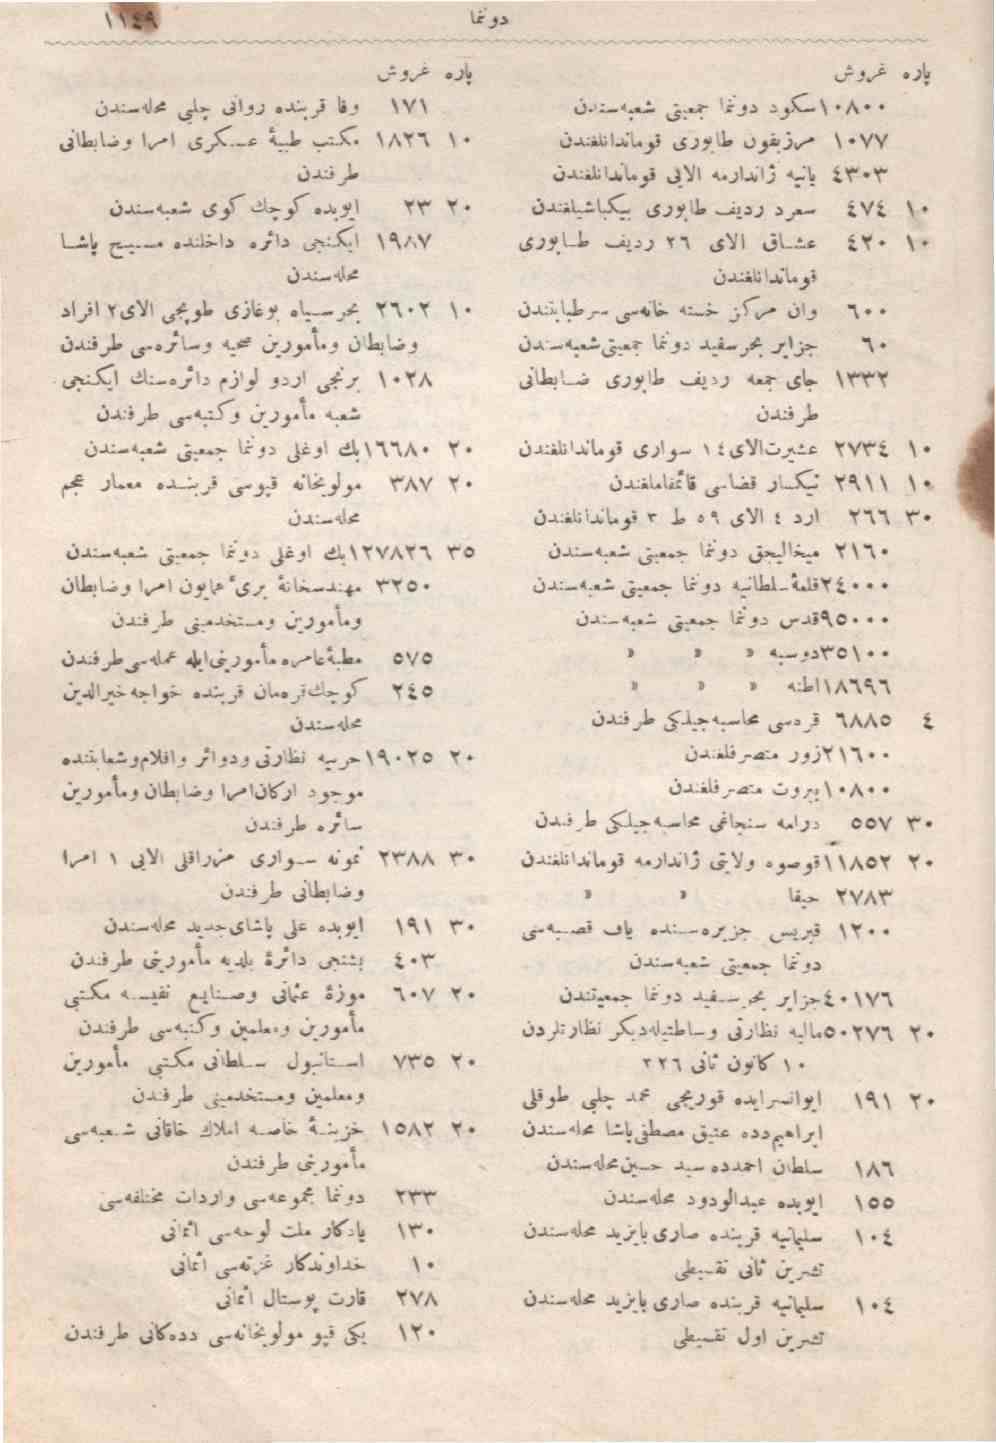 دوننما
١١٤٩
پاره غروش
١٠٨٠٠ سكود دوننما جمعیتی شعبه‌سندن
١٠٧٧ مرزیفون طابوری قوماندانلغندن
٤٣٠٣ یانیه ژاندارمه الایی قوماندانلغندن
١٠ ٤٧٤ سعرد ردیف طابوری بیكباشیلغندن
١٠ ٤٢٠ عشاق الای ٢٦ ردیف طابوری
قوماندانلغندن
٦٠٠ وان مركز خسته خانه‌سی سرطبابتندن
٦٠ جزایر بحرسفید دوننما جمعیتی شعبه‌سندن
١٣٣٢ جای جمعه ردیف طابوری ضابطانی
طرفندن
١٠ ٢٧٣٤ عشیرت الای ١٤ سواری قوماندانلغندن
١٠ ٢٩١١ نیكسار قضاسی قائمقاملغندن
٣٠ ٢٦٦ ارد ٤ الای ٥٩ ط ٣ قوماندانلغندن
٢١٦٠ میخالیجق دوننما جمعیتی شعبه‌سندن
٢٤٠٠٠ قلعۀ سلطانیه دوننما جمعیتی شعبه‌سندن
٩٥٠٠٠ قدس دوننما جمعیتی شعبه‌سندن
٣٥١٠٠ دوسیه » » »
١٨٦٩٦ اطنه » » »
٤ ٦٨٨٥ قره‌سی محاسبه‌جیلكی طرفندن
٢١٦٠٠ زور متصرفلغندن
١٠٨٠٠ بیروت متصرفلغندن
٣٠ ٥٥٧ درامه سنجاغی محاسبه‌جیلكی طرفندن
٢٠ ١١٨٥٢ قوصوه ولایتی ژاندارمه قوماندانلغندن
٢٧٨٣ حیفا » »
١٢٠٠ قبریس جزیره‌سنده یاف قصبه‌سی
دوننما جمعیتی شعبه‌سندن
٤٠١٧٦ جزایر بحرسفید دوننما جمعیتندن
٢٠ ٥٠٢٧٦ مالیه نظارتی وساطتیله دیكر نظارتلردن
١٠ كانون ثانی ٣٢٦
٢٠ ١٩١ ایوانسرایده قوریجی محمد چلبی طوقلی
ابراهیم‌دده عتیق مصطفی‌پاشا محله‌سندن
١٨٦ سلطان احمدده سید حسین محله‌سندن
١٥٥ ایوبده عبدالودود محله‌سندن
١٠٤ سلیمانیه قربنده صاری بایزید محله‌سندن
تشرین ثانی تقسیطی
١٠٤ سلیمانیه قربنده صاری بایزید محله‌سندن
تشرین اول تقسیطی
پاره غروش
١٧١ وفا قربنده روانی چلبی محله‌سندن
١٠ ١٨٢٦ مكتب طبیۀ عسكری امرا وضابطانی
طرفندن
٢٠ ٢٣ ایوبده كوچك كوی شعبه‌سندن
١٩٨٧ ایكنجی دائره داخلنده مسیح پاشا
محله‌سندن
١٠ ٢٦٠٢ بحرسیاه بوغازی طوپجی الای ٢ افراد
وضابطان ومأمورین صحیه وسائره‌سی طرفندن
١٠٢٨ برنجی اردو لوازم دائره‌سنك ایكنجی
شعبه مأمورین وكتبه‌سی طرفندن
٢٠ ١٦٦٨٠ بك اوغلی دوننما جمعیتی شعبه‌سندن
٢٠ ٣٨٧ مولویخانه قپوسی قربنده معمار عجم
محله‌سندن
٣٥ ١٢٧٨٢٦ بك اوغلی دوننما جمعیتی شعبه‌سندن
٣٢٥٠ مهندسخانۀ بریء همایون امرا وضابطان
ومأمورین ومستخدمینی طرفندن
٥٧٥ مطبۀعامره مأمورینی‌ایله عمله‌سی طرفندن
٢٤٥ كوچك‌قره‌مان قربنده خواجه خیرالدین
محله‌سندن
٢٠ ١٩٠٢٥ حربیه نظارتی ودوائر واقلام وشعاباتنده
موجود اركان امرا وضابطان ومأمورین
سائره طرفندن
٣٠ ٢٣٨٨ نمونه سواری مزراقلی الایی ١ امرا
وضابطانی طرفندن
٣٠ ١٩١ ایوبده علی پاشای‌جدید محله‌سندن
٤٠٣ بشنجی دائرۀ بلدیه مأمورینی طرفندن
٢٠ ٦٠٧ موزۀ عثمانی وصنایع نفیسه مكتبی
مأمورین ومعلمین وكتبه‌سی طرفندن
٢٠ ٧٣٥ استانبول سلطانی مكتبی مأمورین
ومعلمین ومستخدمینی طرفندن
٢٠ ١٥٨٢ خزینۀ خاصه املاك خاقانی شعبه‌سی
مأمورینی طرفندن
٢٣٣ دوننما مجموعه‌سی واردات مختلفه‌سی
١٣٠ یادكار ملت لوحه‌سی اثمانی
١٠ خداوندكار غزته‌سی اثمانی
٢٧٨ قارت پوستال اثمانی
١٢٠ یكی قپو مولویخانه‌سی دده‌كانی طرفندن